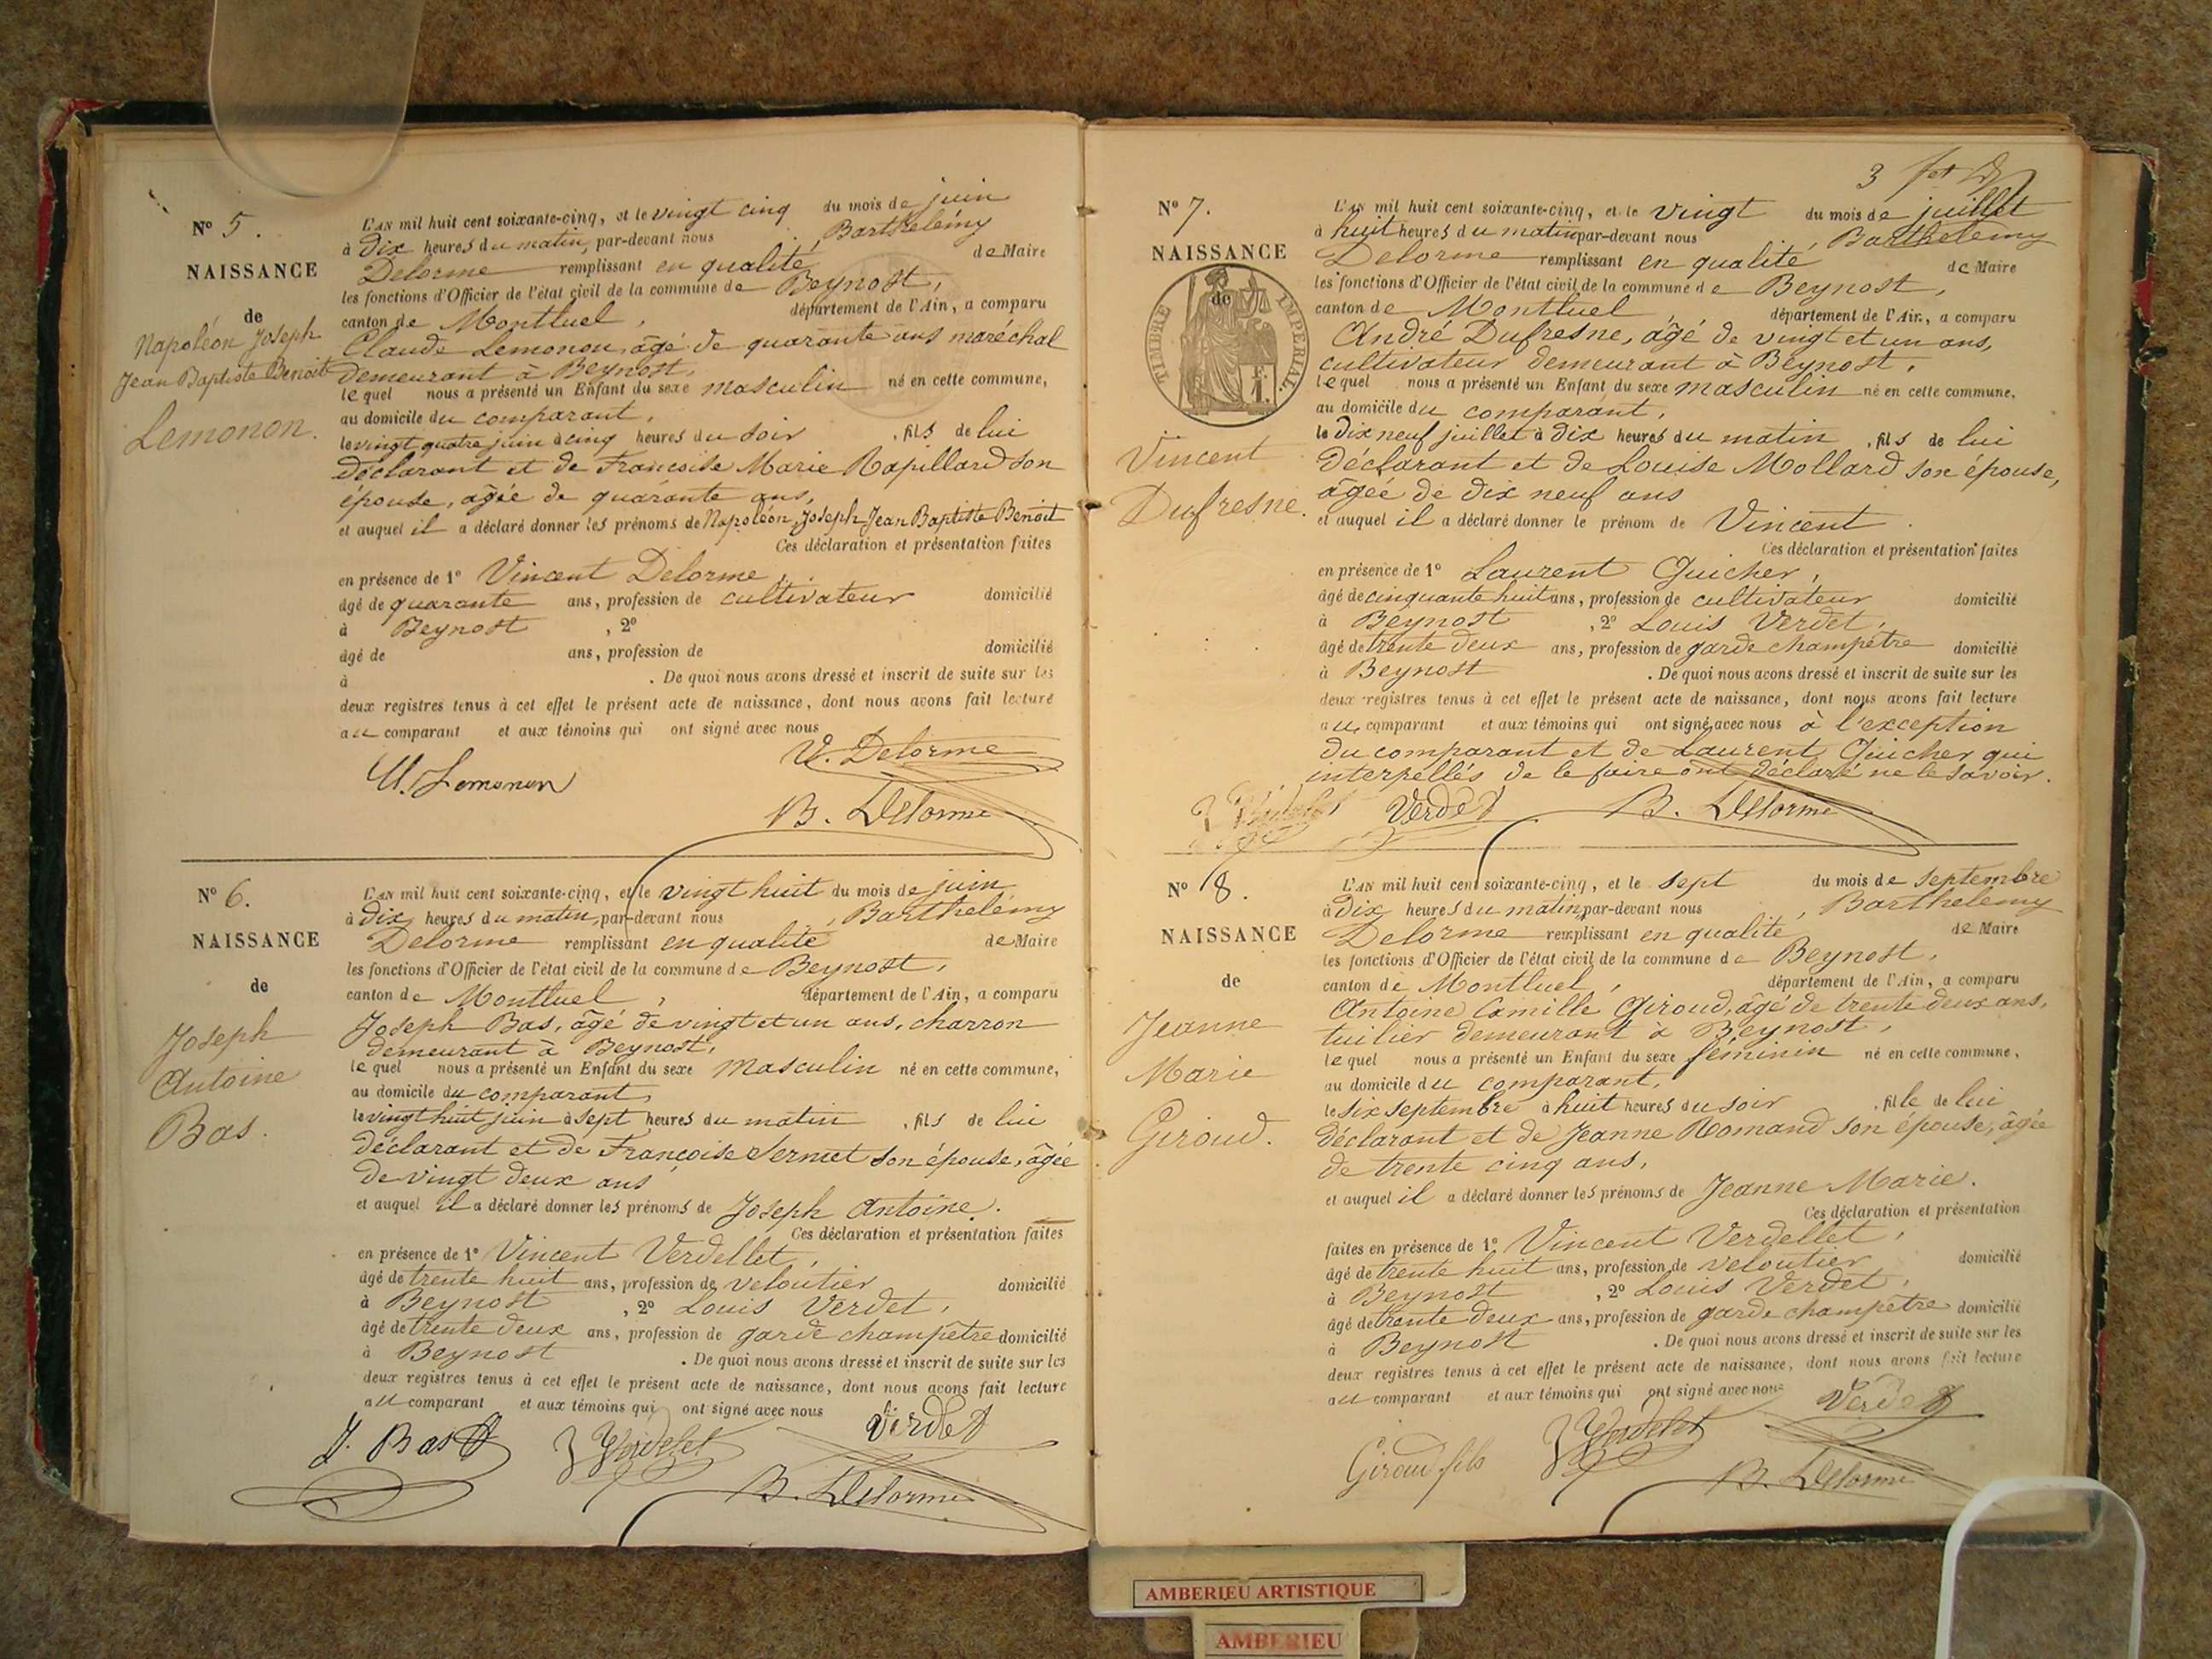 N° 5.
NAISSANCE
de
Napoléon Joseph
Jean Baptiste Benoit
Lemonon.
L'AN mil huit cent soixante-cinq, et le vingt cinq du mois de juin
à dix heures du matin, par-devant nous Barthelémy
Delorme remplissant en qualité de Maire
les fonctions d'Officier de l'état civil de la commune de Beynost,
canton de Montluel, département de l'Ain, a comparu
Claude Lemonon, âgé de quarante ans maréchal
demeurant à Beynost,
lequel nous a présenté un Enfant du sexe masculin né en cette commune,
au domicile du comparant,
le vingt quatre juin à cinq heures du soir, fils de lui
déclarant et de Françoise Marie Rapillard son
épouse, âgée de quarante ans,
et auquel il a déclaré donner les prénoms de Napoléon, Joseph Jean Baptiste Benoit
Ces déclaration et présentation faites
en présence de 1° Vincent Delorme,
âgé de quarante ans, profession de cultivateur domicilié
à Beynost, 2°
âgé de ans, profession de domicilié
à . De quoi nous avons dressé et inscrit de suite sur les
deux registres tenus à cet effet le présent acte de naissance, dont nous avons fait lecture
au comparant et aux témoins qui ont signé avec nous
V. Delorme
Lemonon
B. Delorme
N° 6.
NAISSANCE
de
Joseph
Antoine
Bas.
L'AN mil huit cent soixante-cinq, et le vingt huit du mois de juin
à dix heures du matin, par-devant nous, Barthelémy
Delorme remplissant en qualité de Maire
les fonctions d'Officier de l'état civil de la commune de Beynost,
canton de Montluel, département de l'Ain, a comparu
Joseph Bas, âgé de vingt et un ans, charron
demeurant à Beynost,
lequel nous a présenté un Enfant du sexe masculin né en cette commune,
au domicile du comparant,
le vingt huit juin à sept heures du matin, fils de lui
déclarant et de Françoise Sermet son épouse, âgée
de vingt deux ans
et auquel il a déclaré donner les prénoms de Joseph Antoine.
Ces déclaration et présentation faites
en présence de 1° Vincent Verdellet,
âgé de trente huit ans, profession de veloutier domicilié
à Beynost, 2° Louis Verdet,
âgé de trente deux ans, profession de garde champêtre domicilié
à Beynost. De quoi nous avons dressé et inscrit de suite sur les
deux registres tenus à cet effet le présent acte de naissance, dont nous avons fait lecture
au comparant et aux témoins qui ont signé avec nous
Verdet
J. Bas
Verdelet
B. Delorme
3
N° 7.
NAISSANCE
de
TIMBRE IMPERIAL
Vincent
Dufresne.
L'AN mil huit cent soixante-cinq, et le vingt du mois de juillet
à huit heures du matin par-devant nous Barthelémy
Delorme remplissant en qualité de Maire
les fonctions d'Officier de l'état civil de la commune de Beynost,
canton de Montluel, département de l'Ain, a comparu
André Dufresne, âgé de vingt et un ans,
cultivateur demeurant à Beynost,
lequel nous a présenté un Enfant du sexe masculin né en cette commune,
au domicile du comparant,
le dix neuf juillet à dix heures du matin, fils de lui
déclarant et de Louise Mollard son épouse,
âgée de dix neuf ans
et auquel il a déclaré donner le prénom de Vincent.
Ces déclaration et présentation faites
en présence de 1° Laurent Guicher,
âgé de cinquante huit ans, profession de cultivateur domicilié
à Beynost, 2° Louis Verdet,
âgé de trente deux ans, profession de garde champêtre domicilié
à Beynost. De quoi nous avons dressé et inscrit de suite sur les
deux registres tenus à cet effet le présent acte de naissance, dont nous avons fait lecture
au comparant et aux témoins qui ont signé, avec nous à l'exception
du comparant et de Laurent Guicher qui
interpellés de le faire ont déclaré ne le savoir.
Verdet B. Delorme
N° 8.
NAISSANCE
de
Jeanne
Marie
Giroud.
L'AN mil huit cent soixante-cinq, et le sept du mois de septembre
à dix heures du matin, par-devant nous, Barthelémy
Delorme remplissant en qualité de Maire
les fonctions d'Officier de l'état civil de la commune de Beynost,
canton de Montluel, département de l'Ain, a comparu
Antoine Camille Giroud, âgé de trente deux ans,
tuilier demeurant à Beynost,
lequel nous a présenté un Enfant du sexe féminin né en cette commune,
au domicile du comparant,
le six septembre à huit heures du soir, fille de lui
déclarant et de Jeanne Romand son épouse, âgée
de trente cinq ans,
et auquel il a déclaré donner les prénoms de Jeanne Marie.
Ces déclaration et présentation
faites en présence de 1° Vincent Verdellet,
âgé de trente huit ans, profession de veloutier domicilié
à Beynost, 2° Louis Verdet,
âgé de trente deux ans, profession de garde champêtre domicilié
à Beynost. De quoi nous avons dressé et inscrit de suite sur les
deux registres tenus à cet effet le présent acte de naissance, dont nous avons fait lecture
au comparant et aux témoins qui ont signé avec nous
Verdet
Giroud fils
Verdelet
B. Delorme
AMBERIEU ARTISTIQUE
AMBERIEU